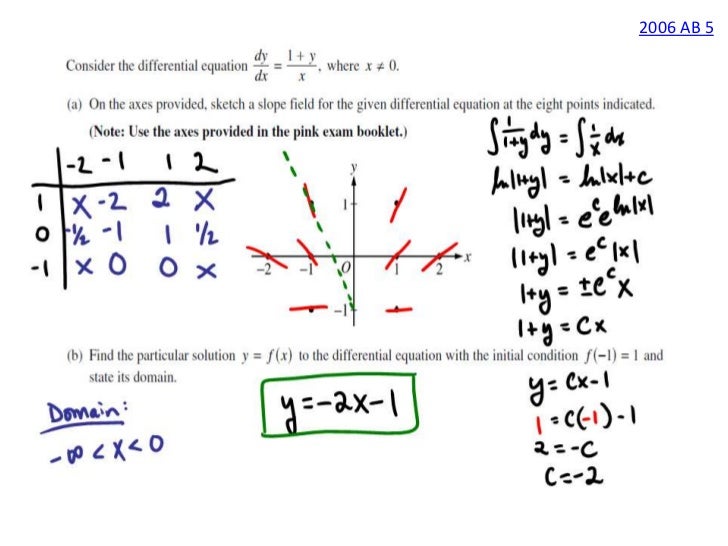 2006 AB 5
Consider the differential equation dy/dx = (1 + y)/x, where x ≠ 0.
(a) On the axes provided, sketch a slope field for the given differential equation at the eight points indicated.
(Note: Use the axes provided in the pink exam booklet.)
-2 -1 1 2
1 x -2 2 x
0 -½ -1 1 ½
-1 x 0 0 x
y
1
-2 -1 O 1 2 x
-1
∫ 1/(1+y) dy = ∫ 1/x dx
ln|1+y| = ln|x|+c
|1+y| = e^c e^ln|x|
|1+y| = e^c |x|
1+y = ±e^c x
1+y = Cx
(b) Find the particular solution y = f(x) to the differential equation with the initial condition f(−1) = 1 and
state its domain.
Domain:
-∞ < x < 0
y = -2x-1
y = Cx-1
1 = C(-1)-1
2 = -C
C = -2